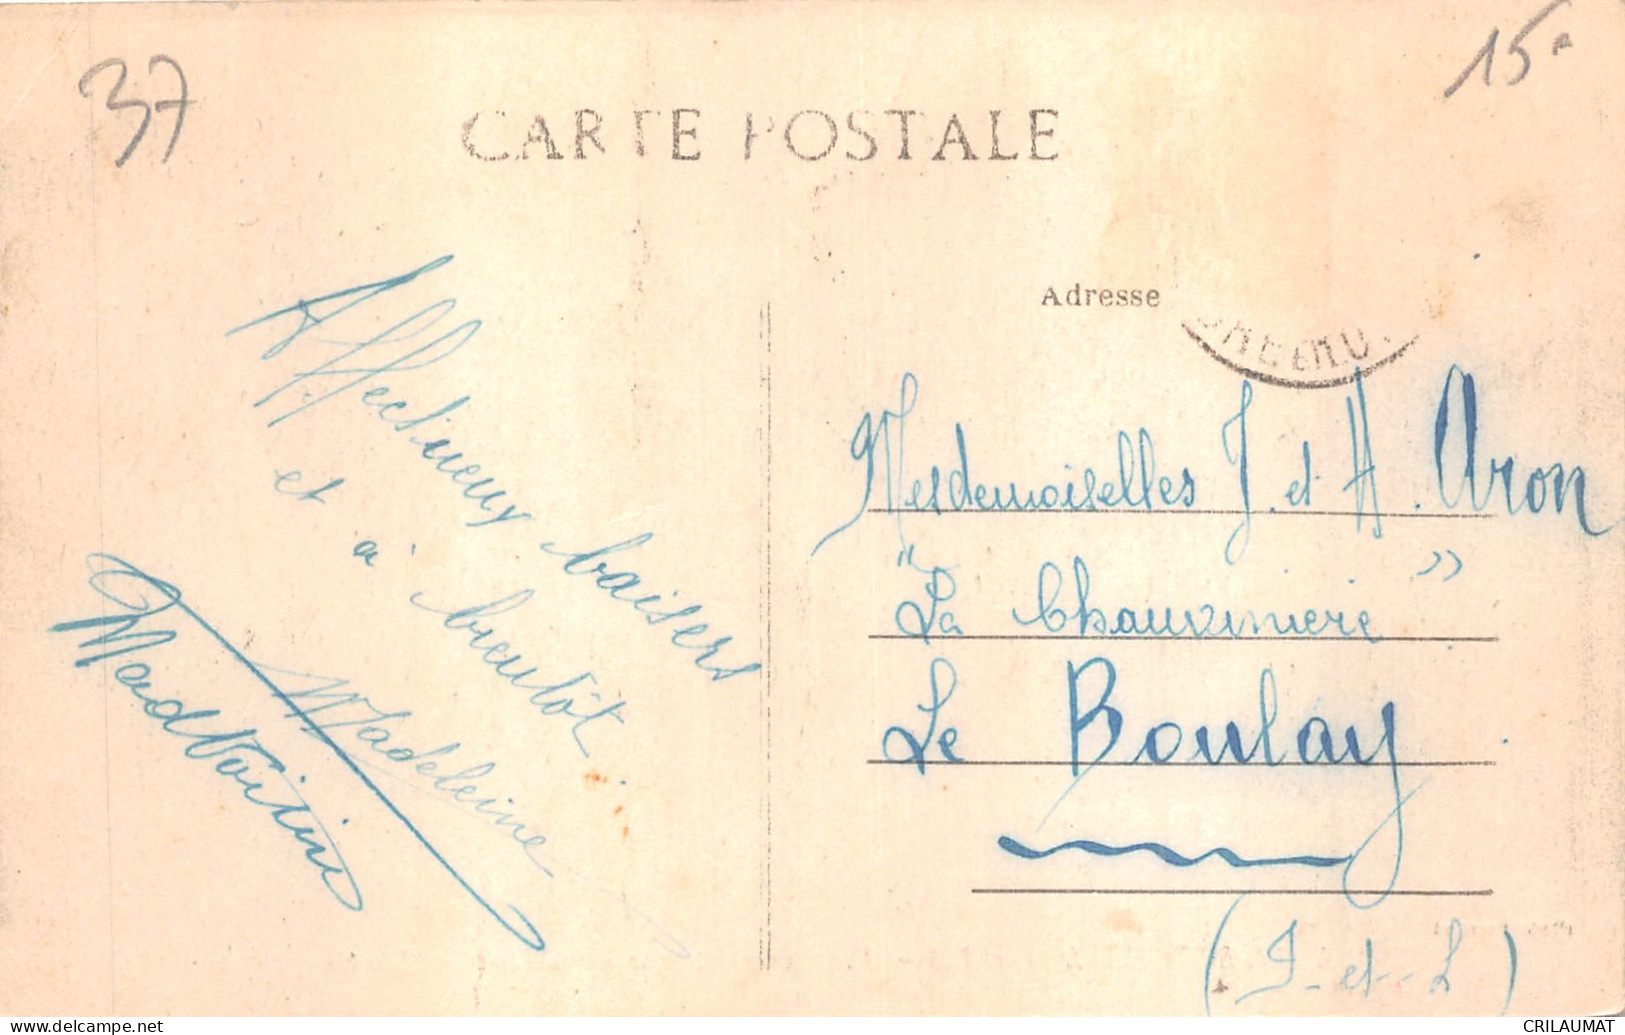 37
15
CARTE POSTALE
Affectueux baisers
et à bientôt.
Madeleine
Adresse
Mesdemoiselles J. et A. Aron
"La Chauvinière"
Le Boulay
(I-et-L)
CRILAUMAT